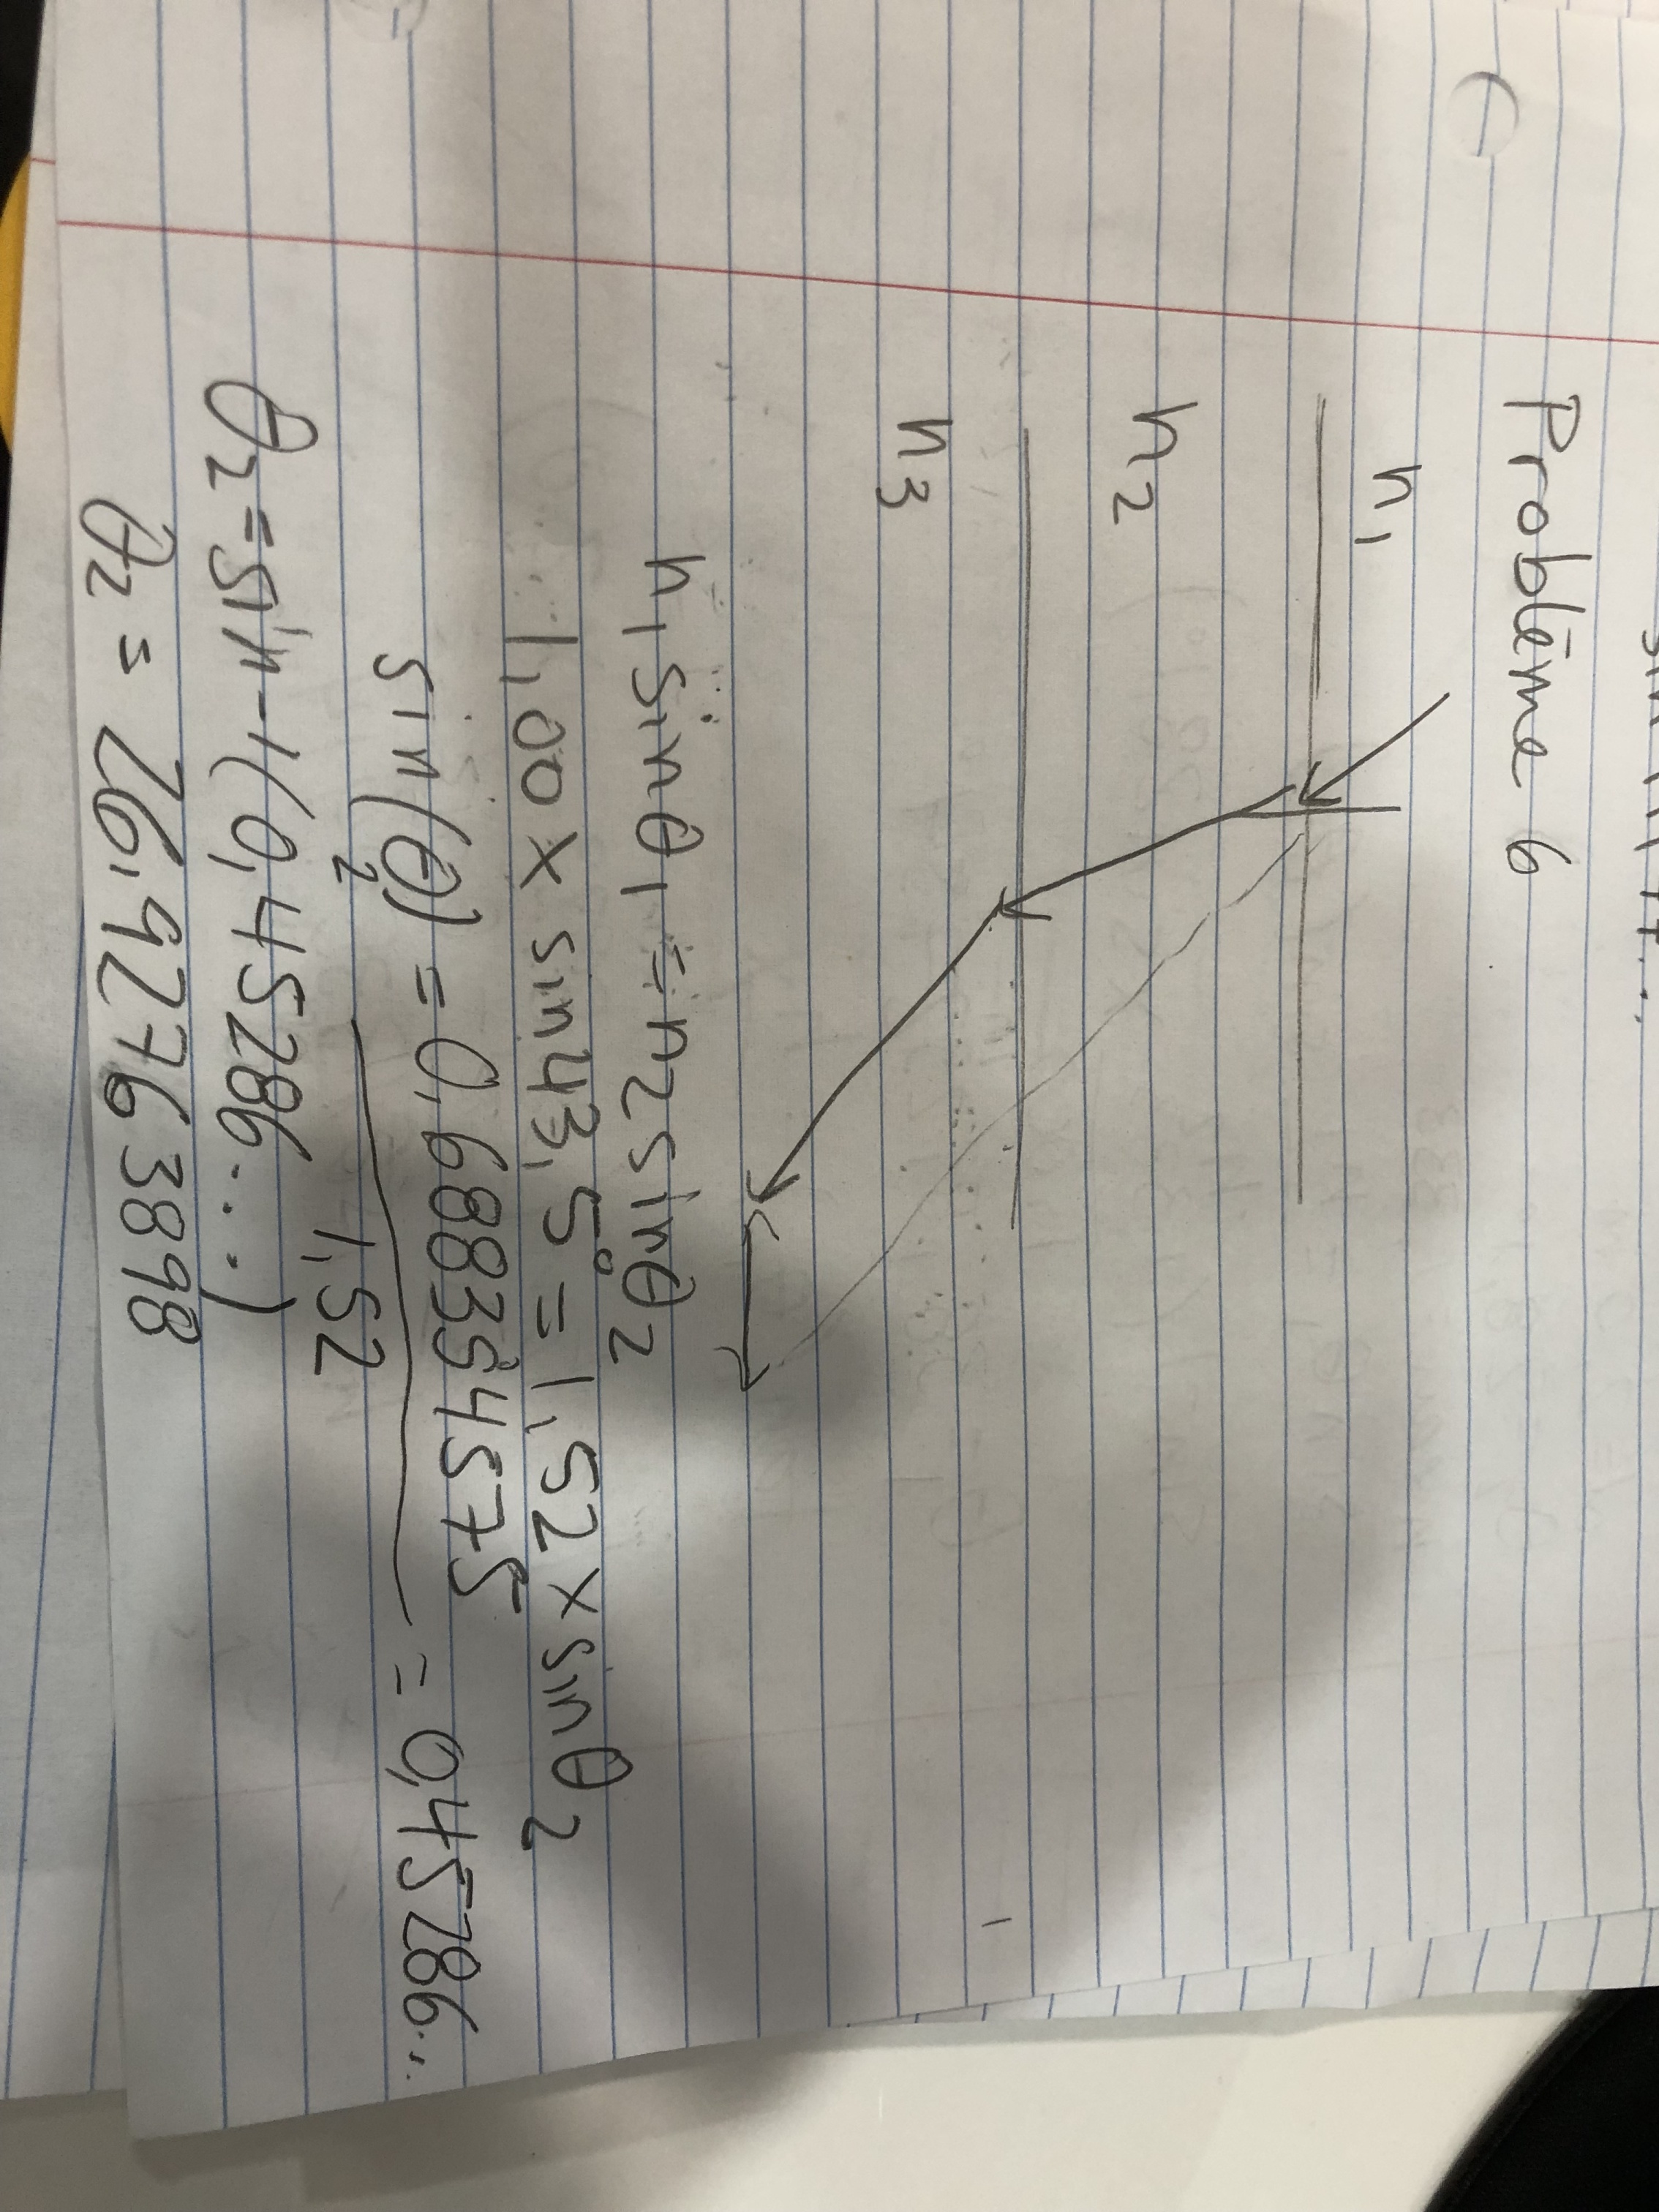 Problème 6
n1
n2
n3
n1 sinθ1 = n2 sinθ2
1,00 x sin43,5° = 1,52 x sinθ2
sin(θ2) = 0,688354575 / 1,52 = 0,45286...
θ2 = sin-1(0,45286...)
θ2 = 26,92763898